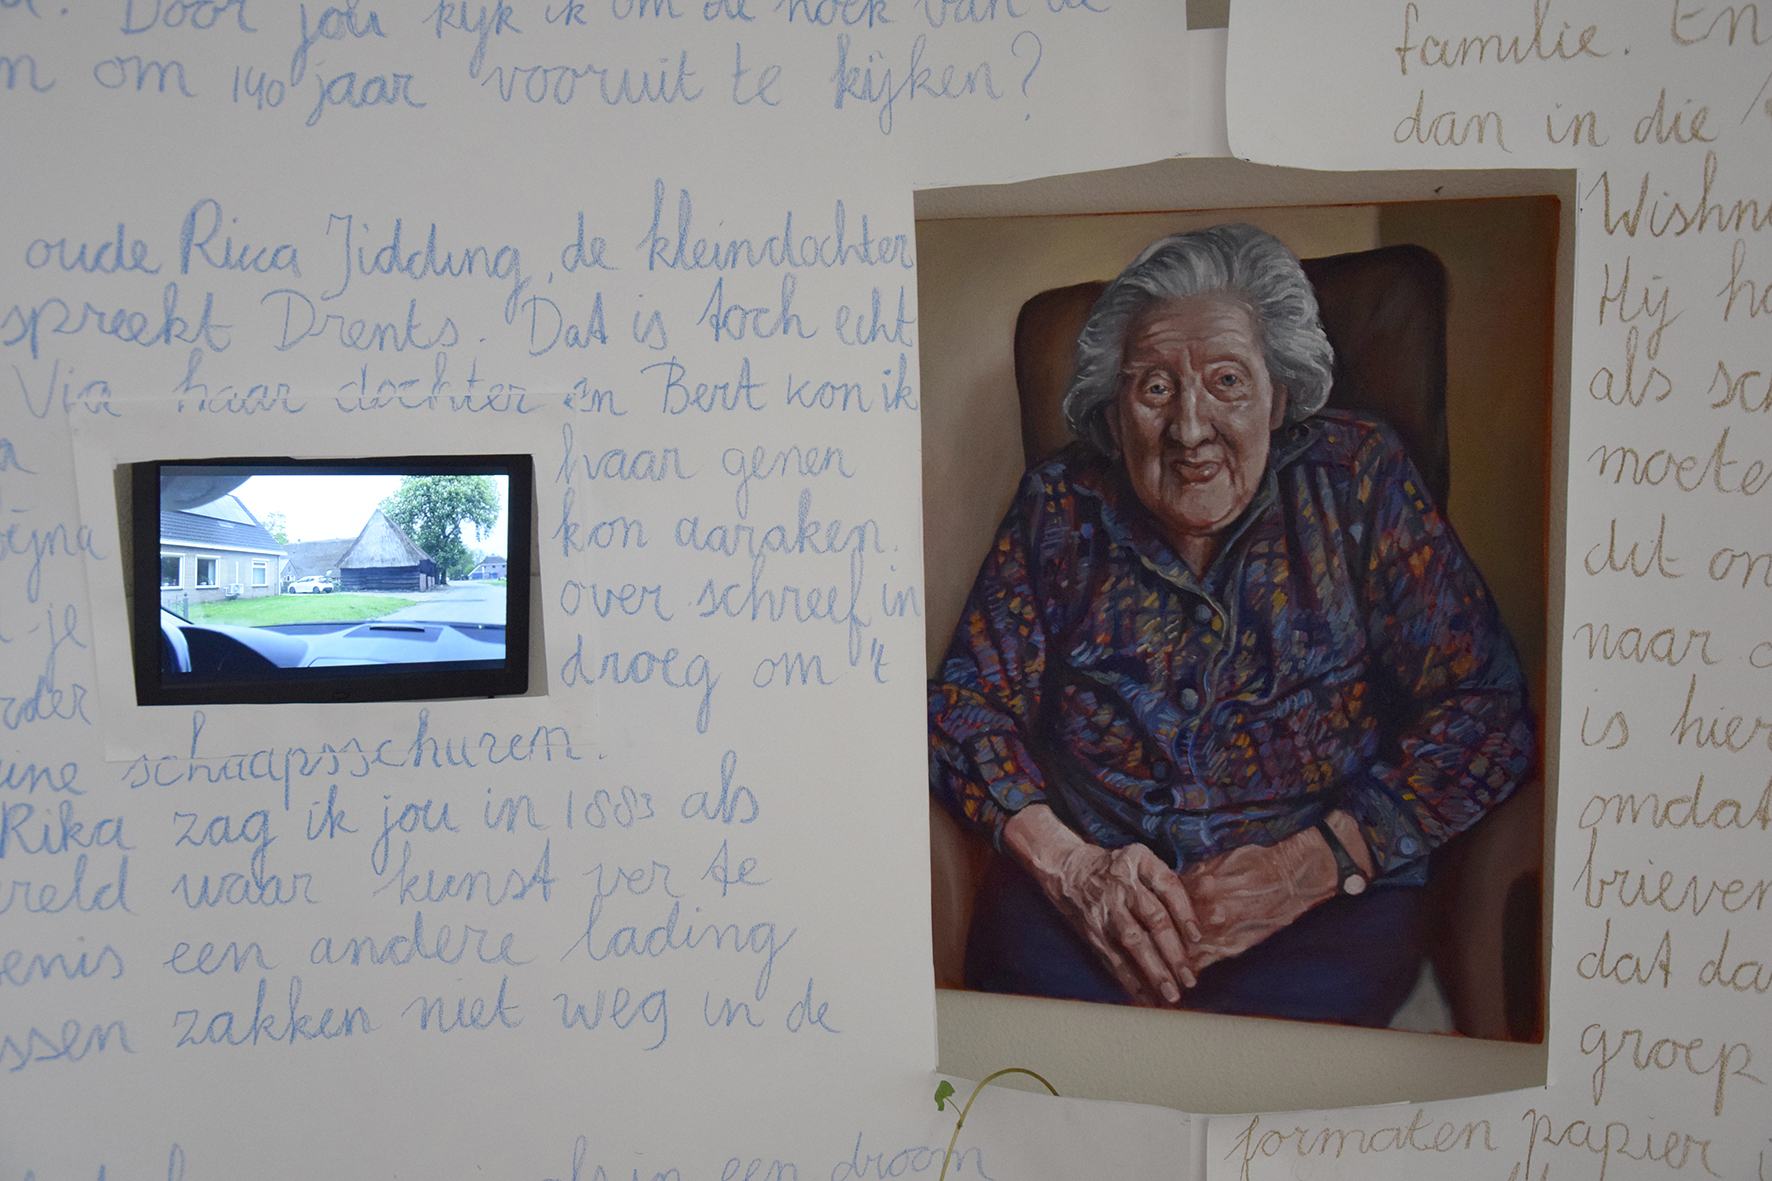 Door jou kijk ik om de hoek van de
om 140 jaar vooruit te kijken?
oude Rika Jidding, de kleindochter
spreekt Drents. Dat is toch echt
Via haar dochter en Bert kon ik
haar genen
bijna kon aaraken.
je over schreef in
droeg om 't
schaapsschuren.
Rika zag ik jou in 1883 als
waar kunst ver te
een andere lading
zakken niet weg in de
als in een droom
familie. En
dan in die
Wishn
Hij ha
als sch
moete
dit on
naar
is hier
omdat
brieven
dat da
groep
formaten papier